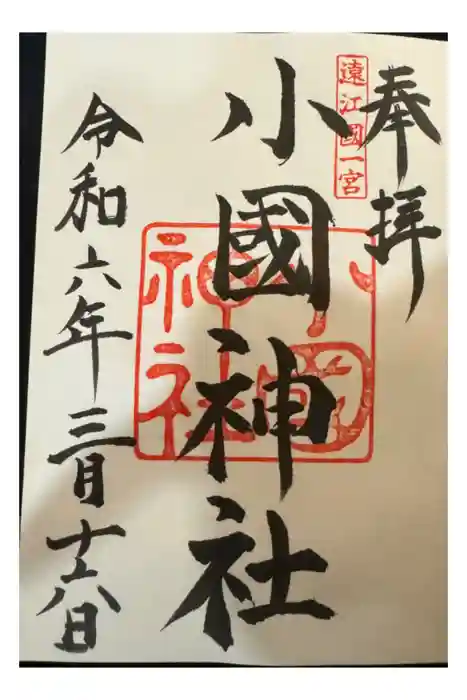 奉拝
遠江國一宮
小國神社
小國神社
令和六年三月十六日